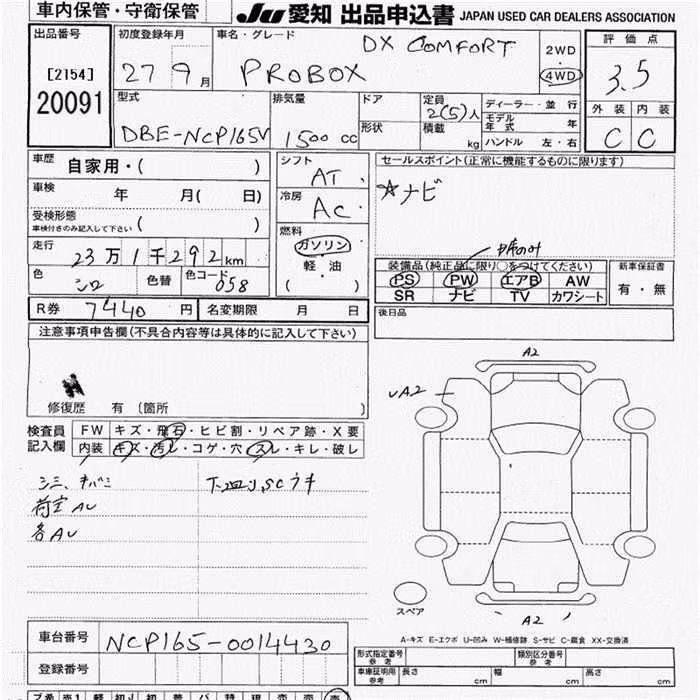 車内保管・守衛保管
JU 愛知 出品申込書 JAPAN USED CAR DEALERS ASSOCIATION
出品番号
[2154]
20091
初度登録年月
27 9月
車名・グレード
DX COMFORT
PROBOX
2WD
4WD
評価点
3.5
外装 内装
C C
型式
DBE-NCP165V
排気量
1500 cc
ドア
形状
定員
2(5)人
積載
kg
ディーラー・並行
モデル年式 年
ハンドル 左・右
車歴 自家用・( )
車検 年 月( 日)
受検形態
車検付きのみ記入して下さい ( )
走行 23万1千292km
色 シロ 色替 色コード 058
R券 7440 円 名変期限 月 日
シフト
AT
冷房
AC
燃料
ガソリン
軽・油
( )
セールスポイント(正常に機能するものに限ります)
☆ナビ
装備品(純正品に限り○をつけてください)
PS PW エアB AW
SR ナビ TV カワシート
新車保証書
有・無
後日品
注意事項申告欄(不具合内容等は具体的に記入して下さい)
修復歴 有 〔箇所 〕
検査員記入欄
FW キズ・飛石・ヒビ割・リペア跡・X要
内装 キズ・汚レ・コゲ・穴・スレ・キレ・破レ
荷室AU
各AU
A2
A2
A2
スペア
A-キズ E-エクボ U-凹み W-補修跡 S-サビ C-腐食 XX-交換済
車台番号 NCP165-0014430
登録番号
形式指定番号 参考
類別区分番号 参考
車庫証明用 参考 長さ cm 幅 cm 高さ cm